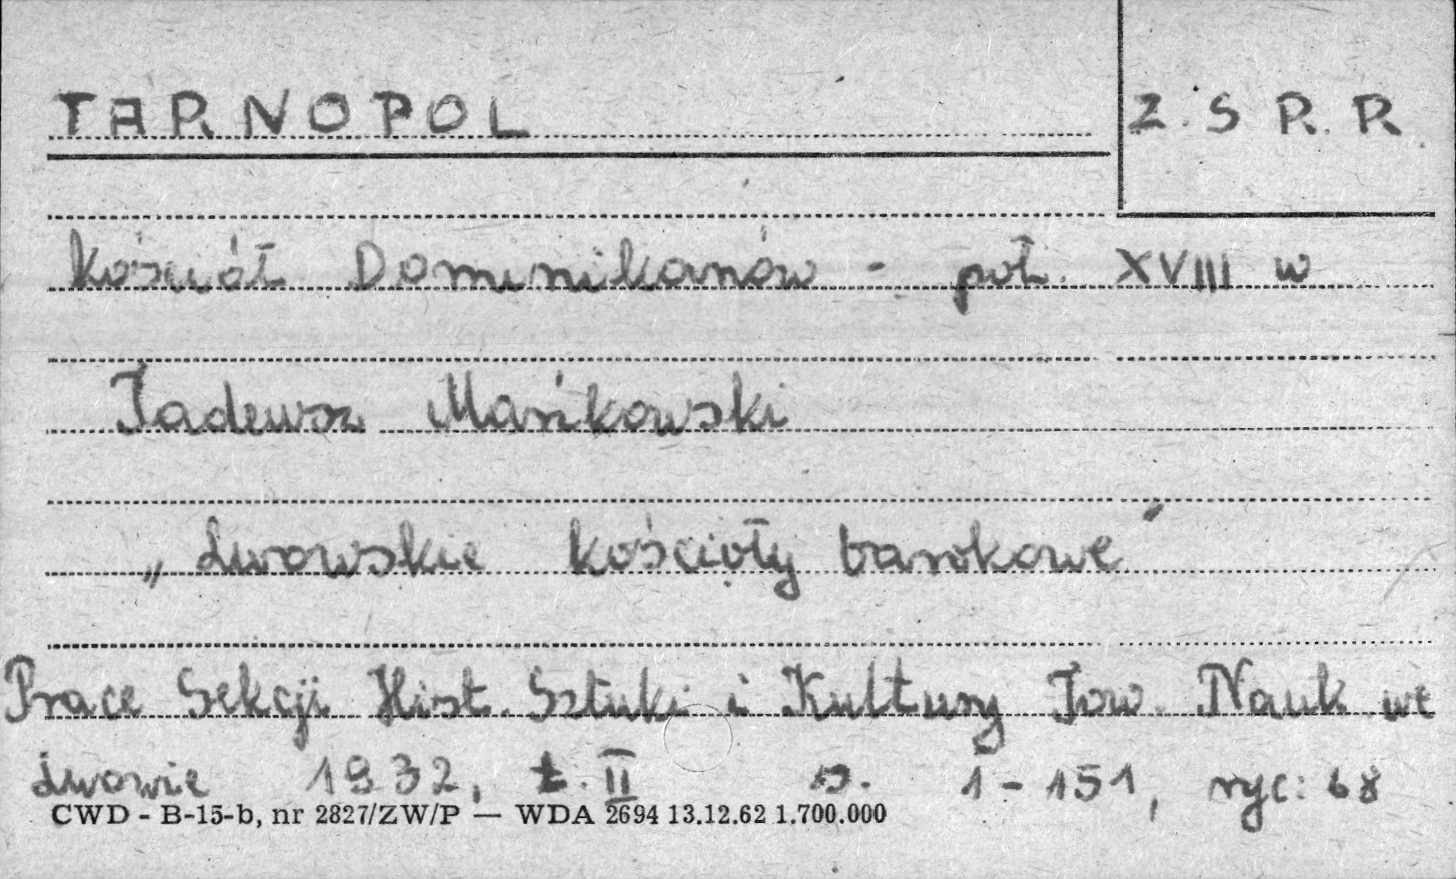 TARNOPOL
Z.S.R.R
Kościół Dominikanów - poł. XVIII w
Tadeusz Mańkowski
„Lwowskie kościoły barokowe"
Prace Sekcji Hist. Sztuki i Kultury Tow. Nauk we
Lwowie 1932, t. II s. 1-151, ryc: 68
CWD - B-15-b, nr 2827/ZW/P — WDA 2694 13.12.62 1.700.000